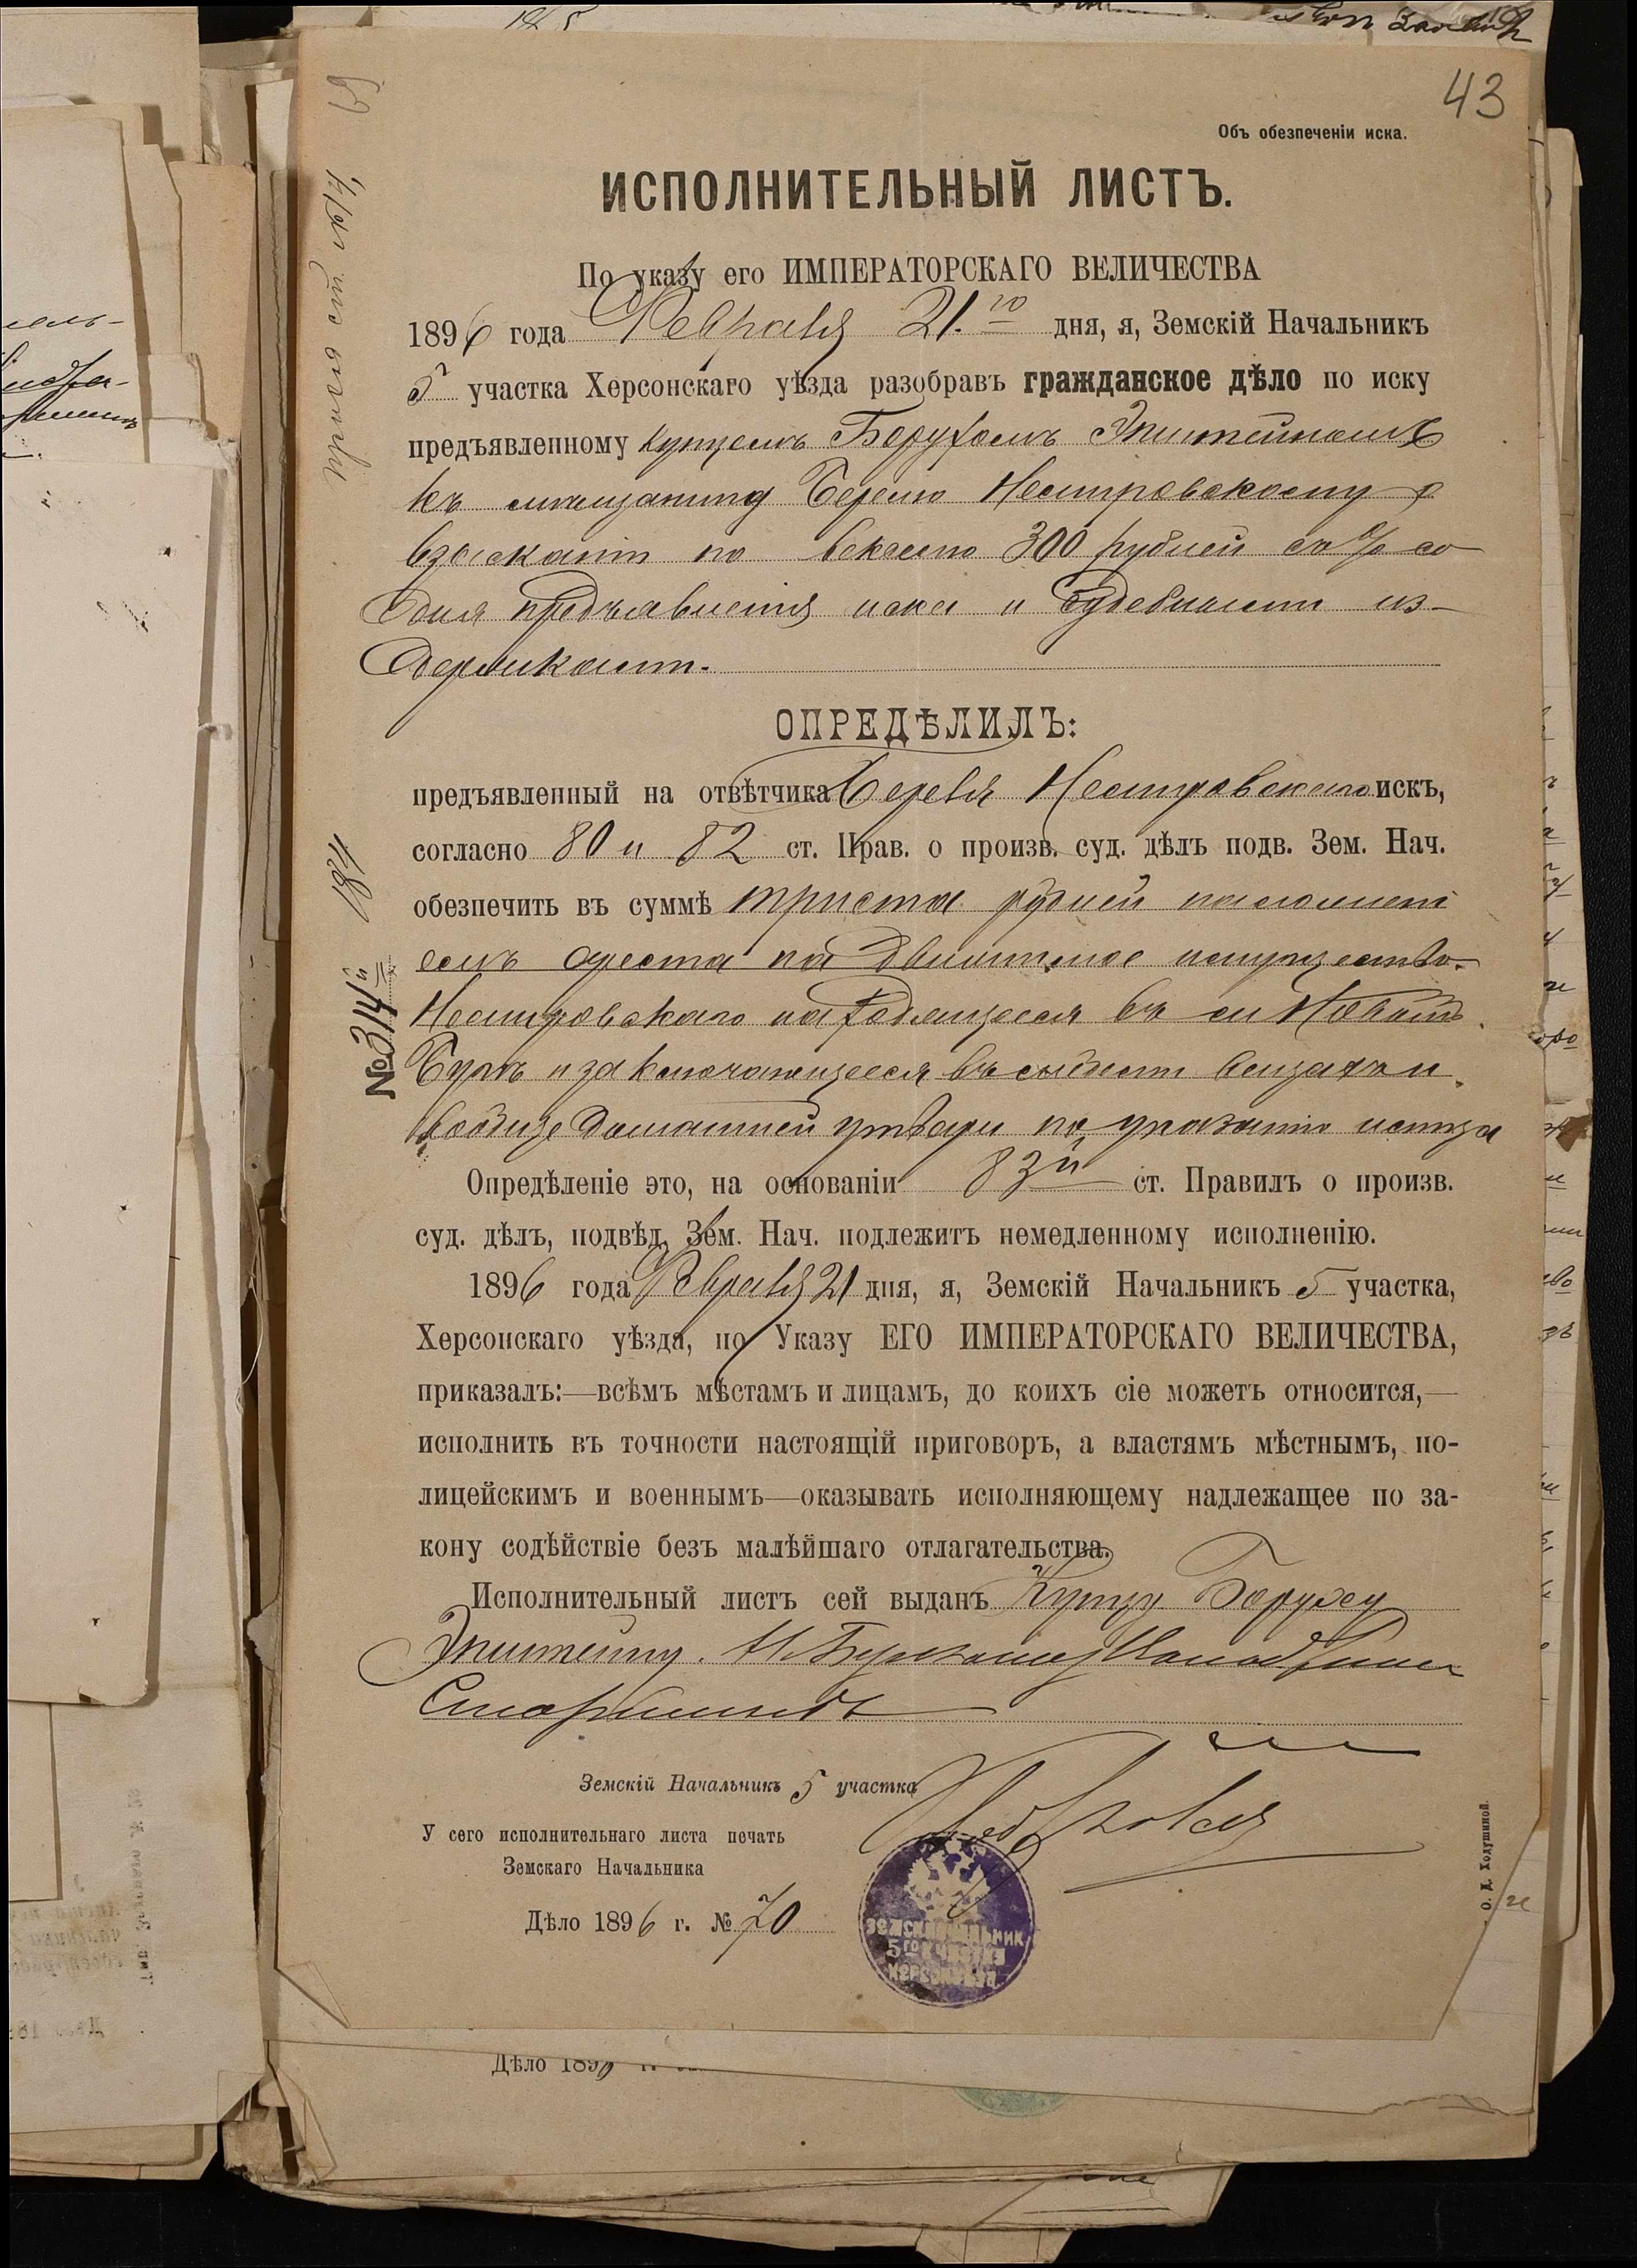 43
Объ обезпеченіи иска.
ИСПОЛНИТЕЛЬНЫЙ ЛИСТЪ.
По указу его ИМПЕРАТОРСКАГО ВЕЛИЧЕСТВА
1896 года Февраля 21.го дня, я, Земскій Начальникъ
5 участка Херсонскаго уѣзда разобравъ гражданское дѣло по иску
предъявленному купцемъ Борухомъ Эпштейномъ
къ мѣщанину Берко Нестировскому о
взысканіи по векселю 300 рублей съ % со
дня предъявленія иска и судебныхъ из-
держкахъ.
ОПРЕДѢЛИЛЪ:
предъявленный на отвѣтчика Нестировскаго искъ,
согласно 80 и 82 ст. Прав. о произв. суд. дѣлъ подв. Зем. Нач.
обезпечить въ суммѣ триста рублей наложені
емъ ареста на движимое имущество
Нестировскаго находящееся въ
Бугъ и заключающееся въ вещахъ и
вообще домашней утвари по указанію истца
Опредѣленіе это, на основаніи 83й ст. Правилъ о произв.
суд. дѣлъ, подвѣд. Зем. Нач. подлежитъ немедленному исполненію.
1896 года Февраля 21 дня, я, Земскій Начальникъ 5 участка,
Херсонскаго уѣзда, по Указу ЕГО ИМПЕРАТОРСКАГО ВЕЛИЧЕСТВА,
приказалъ:—всѣмъ мѣстамъ и лицамъ, до коихъ сіе можетъ относится,—
исполнить въ точности настоящій приговоръ, а властямъ мѣстнымъ, по-
лицейскимъ и военнымъ—оказывать исполняющему надлежащее по за-
кону содѣйствіе безъ малѣйшаго отлагательства.
Исполнительный листъ сей выданъ Купцу Боруху
Эпштейну.
Земскій Начальникъ 5 участка
У сего исполнительнаго листа печать
Земскаго Начальника
Дѣло 1896 г. № 70
Земскій Начальник
5го участка
Херсон. уѣз.
№ 314
О. Д. Ходушиной.
Дѣло 189